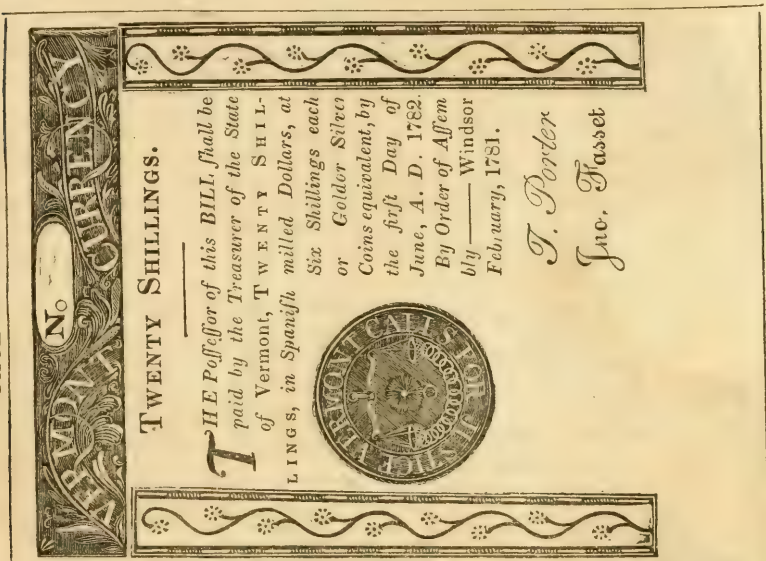 VERMONT No CURRENCY
TWENTY SHILLINGS.
THE Poſſeſſor of this BILL ſhall be
paid by the Treasurer of the State
of Vermont, TWENTY SHIL-
LINGS, in Spaniſh milled Dollars, at
Six Shillings each
or Goldor Silver
Coins equivalent, by
the firſt Day of
June, A. D. 1782.
By Order of Aſſem
bly — Windsor
February, 1781.
VERMONT CALLS FOR JUSTICE
T. Porter
Jno. Fasset